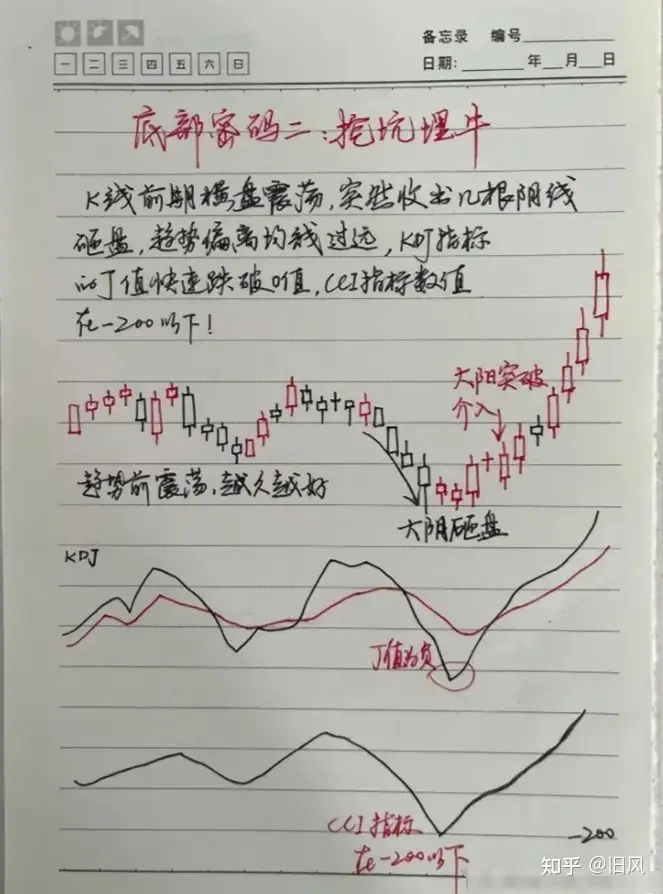 备忘录 编号
一 二 三 四 五 六 日
日期: 年 月 日
底部密码二:挖坑埋牛
K线前期横盘震荡,突然收出几根阴线
砸盘,趋势偏离均线过远,KDJ指标
的J值快速跌破0值,CCI指标数值
在-200以下!
大阳突破
介入
趋势前震荡,越久越好
大阴砸盘
KDJ
J值为负
CCI指标
在-200以下
-200
知乎 @旧风